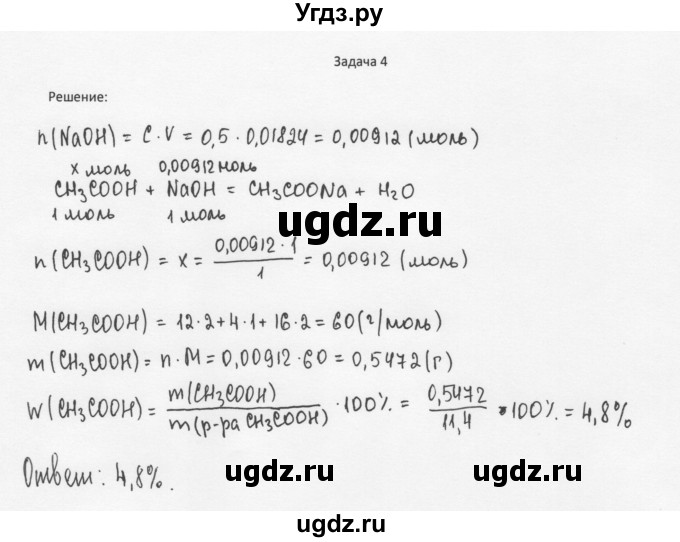 Угдз.ру
Задача 4
Решение:
n(NaOH) = C·V = 0,5 · 0,01824 = 0,00912 (моль)
x моль 0,00912 моль
CH₃COOH + NaOH = CH₃COONa + H₂O
1 моль 1 моль
ugdz.ru
n(CH₃COOH) = x = 0,00912 · 1 / 1 = 0,00912 (моль)
ugdz.ru
M(CH₃COOH) = 12·2+4·1+16·2 = 60 (г/моль)
m(CH₃COOH) = n·M = 0,00912·60 = 0,5472 (г)
W(CH₃COOH) = m(CH₃COOH) / m(р-ра CH₃COOH) · 100% = 0,5472 / 11,4 · 100% = 4,8%
ugdz.ru
Ответ: 4,8%.
ugdz.ru
ugdz.ru